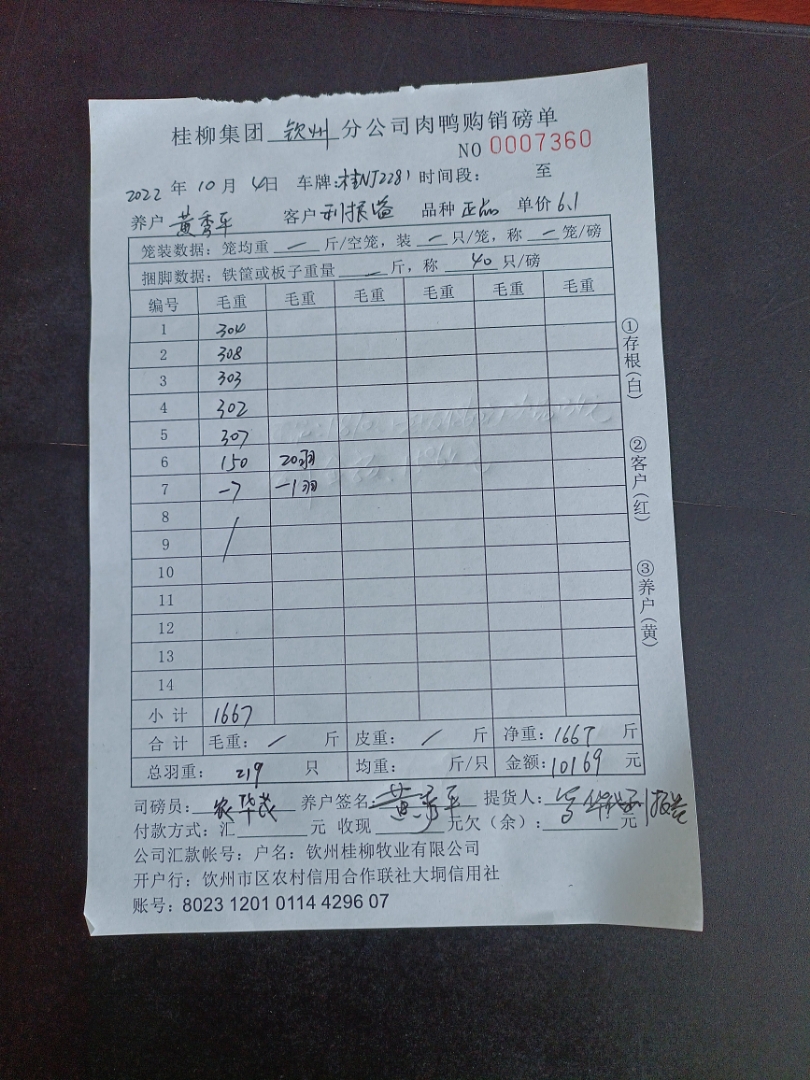 桂柳集团 钦州 分公司肉鸭购销磅单
NO 0007360
2022 年 10 月 4日 车牌:桂NJ2281 时间段: 至
养户 黄秀平 客户 利振溢 品种 正品 单价 6.1
笼装数据:笼均重 一 斤/空笼,装 一 只/笼,称 一 笼/磅
捆脚数据:铁筐或板子重量 一 斤,称 40 只/磅
编号 毛重 毛重 毛重 毛重 毛重 毛重
1 304
2 308
3 303
4 302
5 307
6 150 20羽
7 -7 -1羽
8
9 /
10
11
12
13
14
小计 1667
合计 毛重: / 斤 皮重: / 斤 净重:1667 斤
总羽重: 219 只 均重: 斤/只 金额:10169 元
①存根(白)
②客户(红)
③养户(黄)
司磅员: 农华茂 养户签名: 黄秀平 提货人:
付款方式:汇 元 收现 元欠(余): 元
公司汇款帐号:户名:钦州桂柳牧业有限公司
开户行:钦州市区农村信用合作联社大垌信用社
账号:8023 1201 0114 4296 07